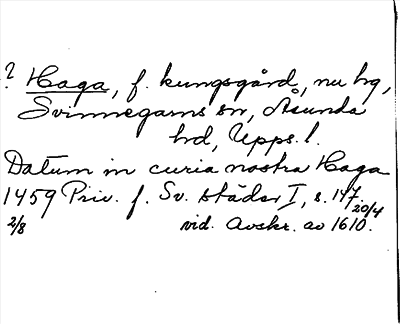 ? Haga, f. kungsgård, nu hg,
Svinnegarns sn, Åsunda
hd, Upps. l.
Datum in curia nostra Haga
1459 Priv. f. Sv. städer I, s. 147.
2/8 vid. Avskr. av 1610. 20/4